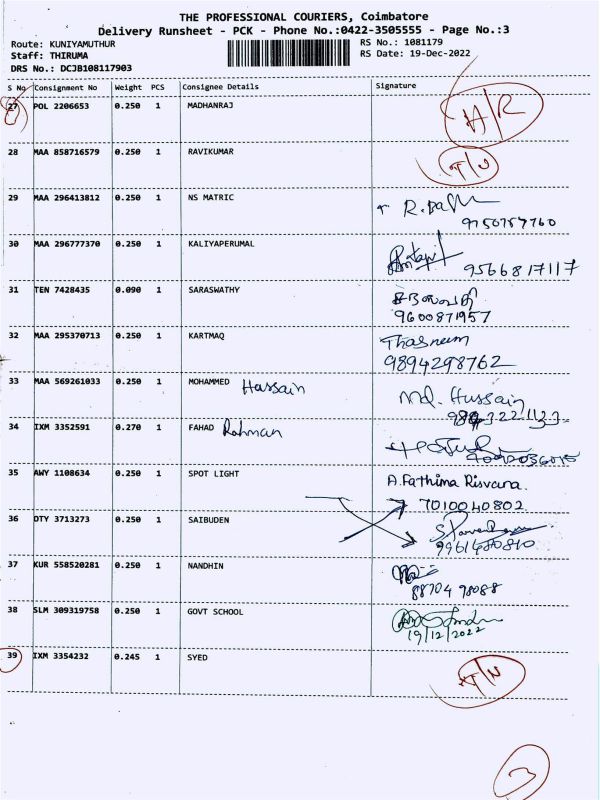 THE PROFESSIONAL COURIERS, Coimbatore
Delivery Runsheet - PCK - Phone No.:0422-3505555 - Page No.:3
Route: KUNIYAMUTHUR RS No.: 1081179
Staff: THIRUMA RS Date: 19-Dec-2022
DRS No.: DCJB108117903
S No Consignment No Weight PCS Consignee Details Signature
27 POL 2206653 0.250 1 MADHANRAJ A/R
28 MAA 858716579 0.250 1 RAVIKUMAR
29 MAA 296413812 0.250 1 NS MATRIC
9750757760
30 MAA 296777370 0.250 1 KALIYAPERUMAL
9566817117
31 TEN 7428435 0.090 1 SARASWATHY
9600871957
32 MAA 295370713 0.250 1 KARTMAQ Thasneem
9894298762
33 MAA 569261033 0.250 1 MOHAMMED Hassain Md. Hussain
34 IXM 3352591 0.270 1 FAHAD Rahman
35 AWY 1108634 0.250 1 SPOT LIGHT A.Fathima Risvana
7010040802
36 DTY 3713273 0.250 1 SAIBUDEN
37 KUR 558520281 0.250 1 NANDHIN
88704 98088
38 SLM 309319758 0.250 1 GOVT SCHOOL
19/12/2022
39 IXM 3354232 0.245 1 SYED
3